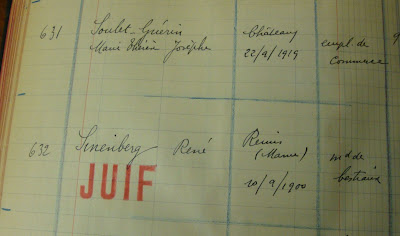 631 Soulet-Guérin Château 
Marie Josèphe 22/9/1919 empl. de
Commerce
632 Sinenberg René Reims
(Marne) md de
JUIF 10/9/1900 bestiaux